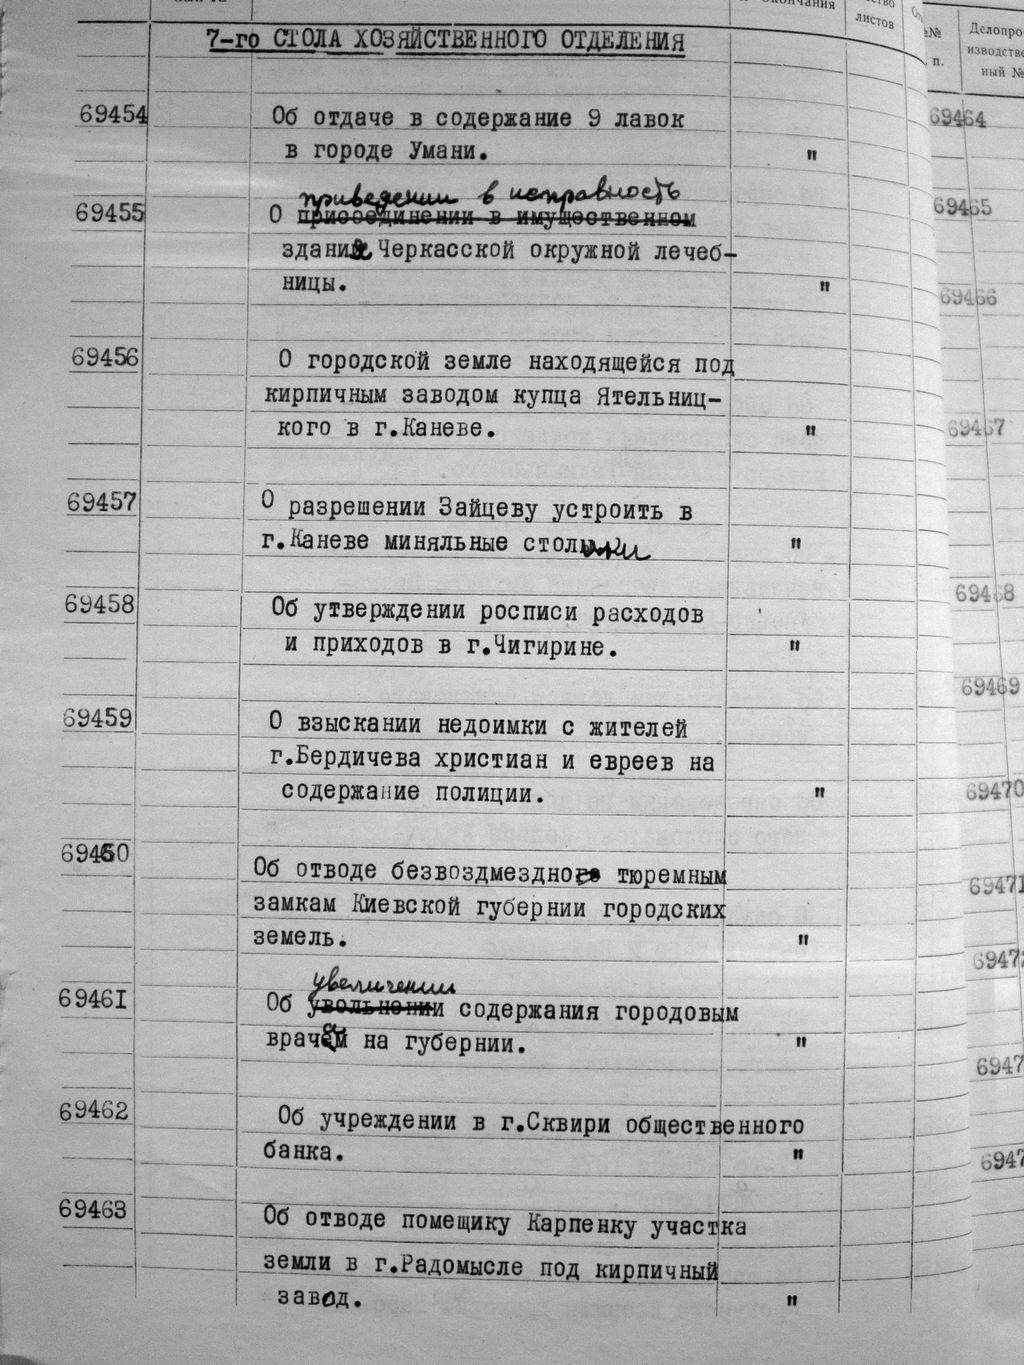 окончания
листов
Делопро
изводстве
ный №
№№
п.
7-го СТОЛА ХОЗЯЙСТВЕННОГО ОТДЕЛЕНИЯ
69454 Об отдаче в содержание 9 лавок
в городе Умани. "
приведении в исправность
69455 О присоединении в имущественном
зданий Черкасской окружной лечеб-
ницы. "
69456 О городской земле находящейся под
кирпичным заводом купца Ятельниц-
кого в г.Каневе. "
69457 О разрешении Зайцеву устроить в
г.Каневе миняльные столики "
69458 Об утверждении росписи расходов
и приходов в г.Чигирине. "
69459 О взыскании недоимки с жителей
г.Бердичева христиан и евреев на
содержание полиции. "
69460 Об отводе безвоздмездно тюремным
замкам Киевской губернии городских
земель. "
увеличении
69461 Об увольнении содержания городовым
врачам на губернии. "
69462 Об учреждении в г.Сквири общественного
банка. "
69463 Об отводе помещику Карпенку участка
земли в г.Радомысле под кирпичный
завод. "
69464
69465
69466
69467
69468
69469
69470
69471
6947
6947
6947